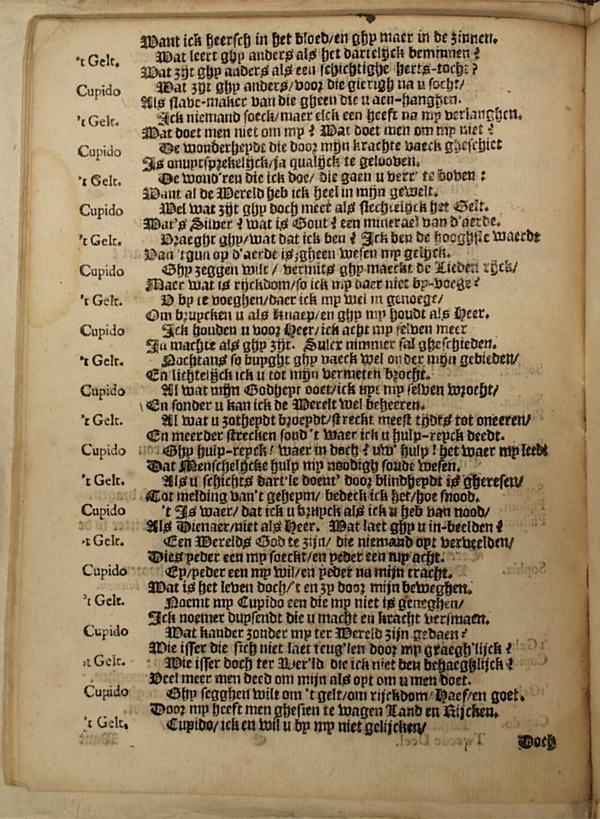 Want ick heersch in het bloed/en ghy maer in de zinnen.
't Gelt. Wat leert ghy anders als het dartelijck beminnen?
Wat zijt ghy anders als een schichtighe herts-tocht?
Cupido Wat zijt ghy anders/voor die gierigh na u socht/
Als slave-maker van die gheen die u aen-hanghen.
't Gelt. Ick niemand soeck/maer elck een heeft na my verlanghen.
Wat doet men niet om my? Wat doet men om my niet?
Cupido De wonderheydt die door mijn krachte vaeck gheschiet
Is onuytsprekelijck/ja qualijck te gelooven.
't Gelt. De wond'ren die ick doe/ die gaen u verr' te boven:
Want al de Wereld heb ick heel in mijn gewelt.
Cupido Wel wat zijt ghy doch meer als slechtelijck het Gelt.
Wat's Silver? wat is Gout? een minerael van d'aerde.
't Gelt. Vraeght ghy/wat dat ick ben? Ick ben de hooghste waerde
Van 'tgun op d'aerde is;gheen wesen my gelijck.
Cupido Ghy zeggen wilt/ vermits ghy maeckt de Lieden rijck/
Maer wat is rijckdom/so ick my daer niet by-voege?
't Gelt. O by te voeghen/daer ick my wel in genoege/
Om bruycken u als knaep/en ghy my houdt als Heer.
Cupido Ick houden u voor Heer/ick acht my selven meer
In machte als ghy zijt. Sulcx nimmer sal gheschieden.
't Gelt. Nochtans so buyght ghy vaeck wel onder mijn gebieden/
En lichtelijck ick u tot mijn vermeten brocht.
Cupido Al wat mijn Godheyt doet/ick uyt my selven wrocht/
En sonder u kan ick de Werelt wel beheeren.
't Gelt. Al wat u zotheydt broeydt/streckt meest tijdts tot oneeren/
En meerder strecken soud't waer ick u hulp-reyck deedt.
Cupido Ghy hulp-reyck! waer in doch? uw' hulp! het waer my leedt
Dat Menschelijcke hulp my noodigh soude wesen.
't Gelt. Als u schichts dart'le doent' door blindheydt is gheresen/
Tot melding van't geheym/ bedeck ick het/hoe snood.
Cupido 't Is waer/ dat ick u bruyck als ick u heb van nood/
Als Dienaer/niet als Heer. Wat laet ghy u in-beelden?
't Gelt. Een Werelds God te zijn/ die niemand oyt verveelden/
Dies yeder een my soeckt/en yeder een my acht.
Cupido Ey/yeder een my wil/en yeder na mijn tracht.
Wat is het leven doch/'t en zy door mijn beweghen.
't Gelt. Noemt my Cupido een die my niet is geneghen/
Ick noemer duysendt die u macht en kracht versmaen.
Cupido Wat kander zonder my ter Wereld zijn gedaen?
Wie isser die sich niet laet teug'len door my graegh'lijck?
't Gelt. Wie isser doch ter Wer'ld die ick niet ben behaeghlijck?
Veel meer men deed om mijn als oyt om u men doet.
Cupido Ghy segghen wilt om 't gelt/om rijckdom/Haef/en goet.
Door my heeft men ghesien te wagen Land en Rijcken.
't Gelt. Cupido/ ick en wil u by my niet gelijcken/
Doch